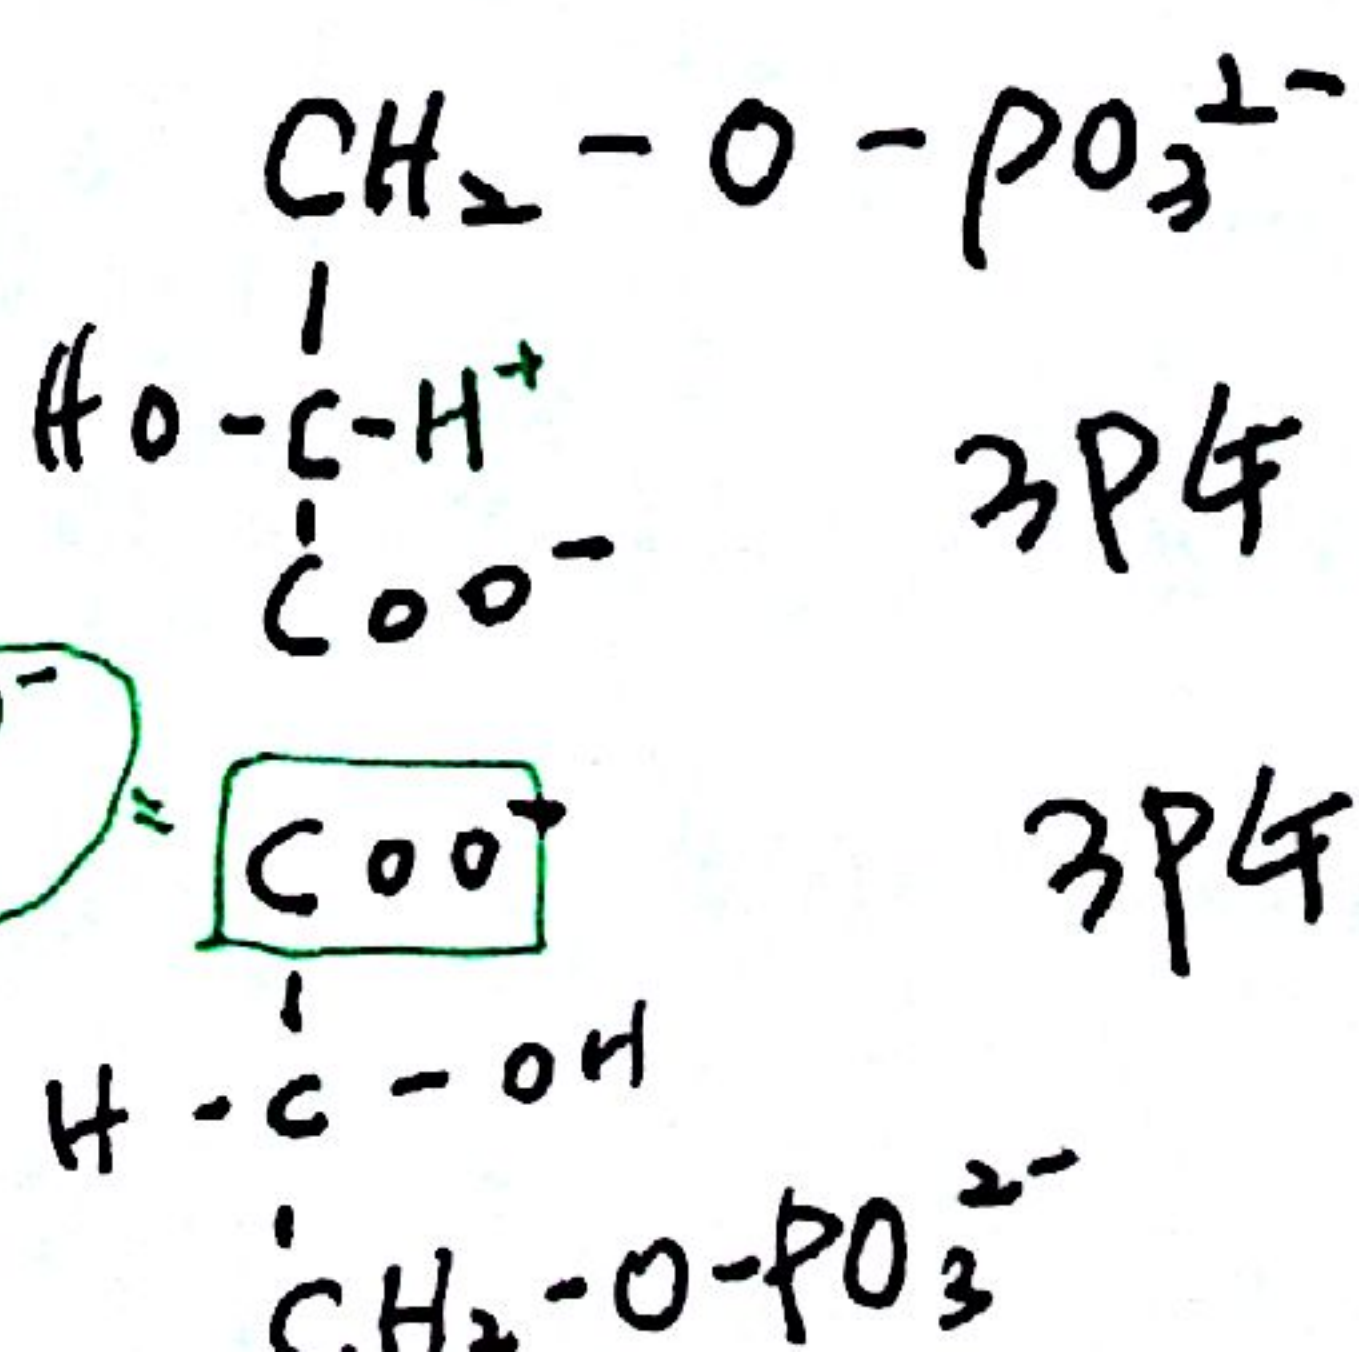 CH₂-O-PO₃²⁻
|
HO-C-H⁺
|
COO⁻
3PG
-
=
COO⁻
3PG
|
H-C-OH
|
CH₂-O-PO₃²⁻